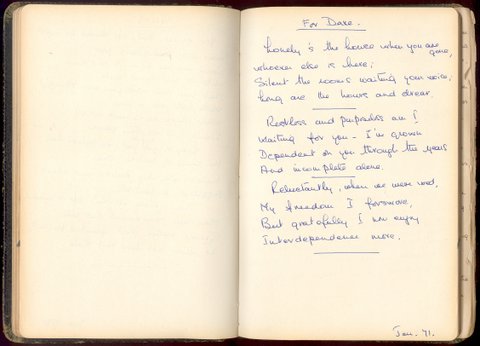 For Dave.
Lonely is the house when you are gone,
whoever else is here;
Silent the rooms waiting your voice;
Long are the hours and drear.
Restless and purposeless am I
Waiting for you - I'm grown
Dependent on you through the years
And incomplete alone.
Reluctantly, when we were wed,
My freedom I forswore,
But gratefully I now enjoy
Interdependence more.
Jan. 71.